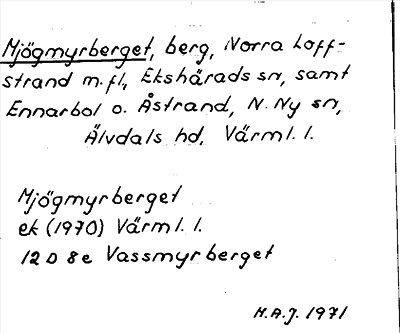 Mjögmyrberget, berg, Norra Loff-
strand m.fl, Ekshärads sn, samt
Ennarbol o. Åstrand, N. Ny sn,
Älvdals hd, Värml. l.
Mjögmyrberget
ek (1970) Värml. l.
12 D 8 e Vassmyrberget
H.A.J. 1971